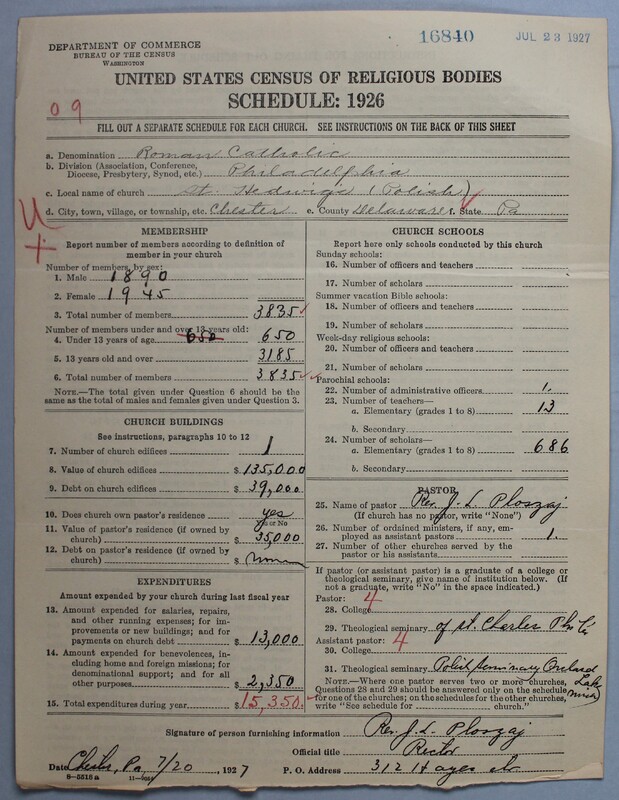 16840
JUL 23 1927
DEPARTMENT OF COMMERCE
BUREAU OF THE CENSUS
WASHINGTON
UNITED STATES CENSUS OF RELIGIOUS BODIES
SCHEDULE: 1926
09
FILL OUT A SEPARATE SCHEDULE FOR EACH CHURCH. SEE INSTRUCTIONS ON THE BACK OF THIS SHEET
a. Denomination Roman Catholic
b. Division (Association, Conference, Diocese, Presbytery, Synod, etc.) Philadelphia
c. Local name of church St. Hedwige (Polish)
d. City, town, village, or township, etc. Chester e. County Delaware f. State Pa
U
+
MEMBERSHIP
Report number of members according to definition of member in your church
Number of members, by sex:
1. Male 1890
2. Female 1945
3. Total number of members 3835
Number of members under and over 13 years old:
4. Under 13 years of age 650 650
5. 13 years old and over 3185
6. Total number of members 3835
NOTE.—The total given under Question 6 should be same as the total of males and females given under Question 3.
CHURCH BUILDINGS
See instructions, paragraphs 10 to 12
7. Number of church edifices 1
8. Value of church edifices $ 135,000
9. Debt on church edifices $ 39,000
10. Does church own pastor's residence yes
Yes or No
11. Value of pastor's residence (if owned by church) $ 35,000
12. Debt on pastor's residence (if owned by church) $
EXPENDITURES
Amount expended by your church during last fiscal year
13. Amount expended for salaries, repairs, and other running expenses; for improvements or new buildings; and for payments on church debt $ 13,000
14. Amount expended for benevolences, including home and foreign missions; for denominational support; and for all other purposes $ 2,350
15. Total expenditures during year $ 15,350.
CHURCH SCHOOLS
Report here only schools conducted by this church
Sunday schools:
16. Number of officers and teachers
17. Number of scholars
Summer vacation Bible schools:
18. Number of officers and teachers
19. Number of scholars
Week-day religious schools:
20. Number of officers and teachers
21. Number of scholars
Parochial schools:
22. Number of administrative officers 1.
23. Number of teachers—
a. Elementary (grades 1 to 8) 13
b. Secondary
24. Number of scholars—
a. Elementary (grades 1 to 8) 686
b. Secondary
PASTOR
25. Name of pastor Rev. J. L. Ploszaj
(If church has no pastor, write "None")
26. Number of ordained ministers, if any, employed as assistant pastors 1.
27. Number of other churches served by the pastor or his assistants
If pastor (or assistant pastor) is a graduate of a college or theological seminary, give name of institution below. (If not a graduate, write "No" in the space indicated.)
Pastor: 4
28. College
29. Theological seminary of St. Charles
Assistant pastor: 4
30. College
31. Theological seminary Polish Seminary Orchard Lake Mich
NOTE.—Where one pastor serves two or more churches, Questions 28 and 29 should be answered only on the schedule for one of the churches; on the schedules for the other churches, write "See schedule for church."
Signature of person furnishing information Rev. J. L. Ploszaj
Official title Rector
Date Chester, Pa, 7/20, 1927 P. O. Address 312 Hayes str
8—5516 a